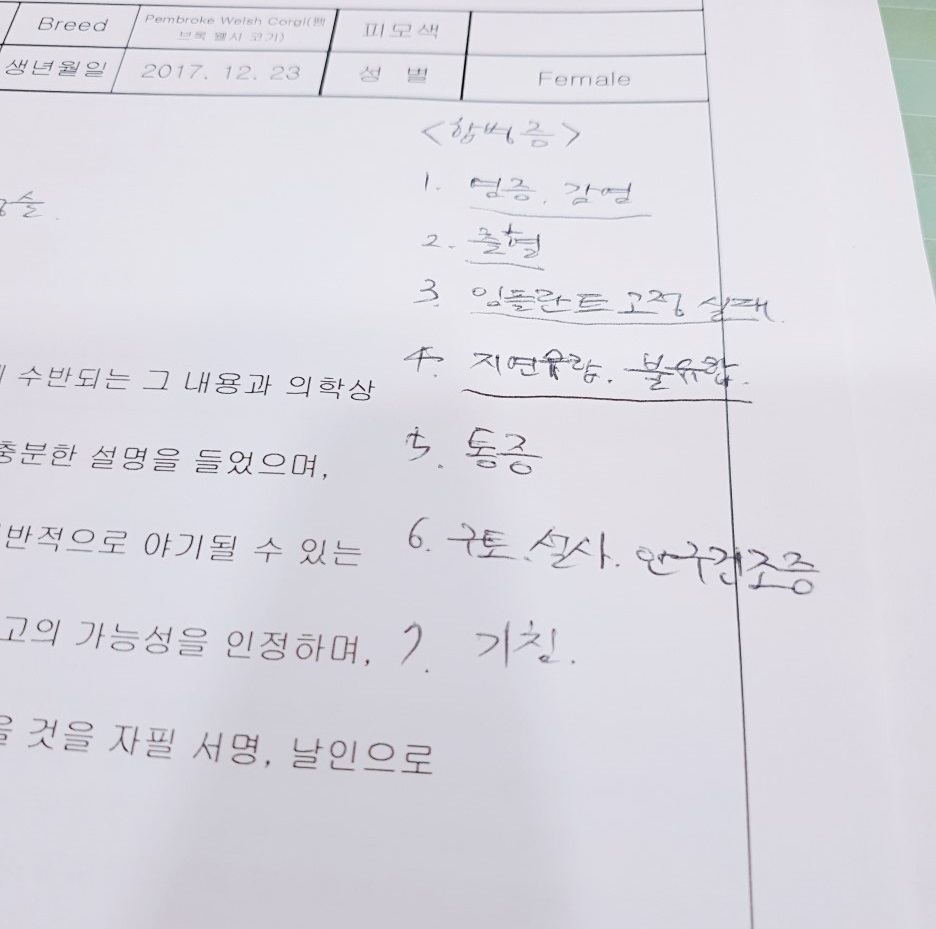 Breed Pembroke Welsh Corgi(펨브록 웰시 코기) 피모색
생년월일 2017. 12. 23 성 별 Female
<합병증>
1. 염증. 감염
술.
2. 출혈
3. 임플란트 고정 실패.
4. 지연유합. 불유합.
수반되는 그 내용과 의학상
5. 통증
충분한 설명을 들었으며,
6. 구토. 설사. 안구건조증
반적으로 야기될 수 있는
7. 기침.
고의 가능성을 인정하며,
을 것을 자필 서명, 날인으로